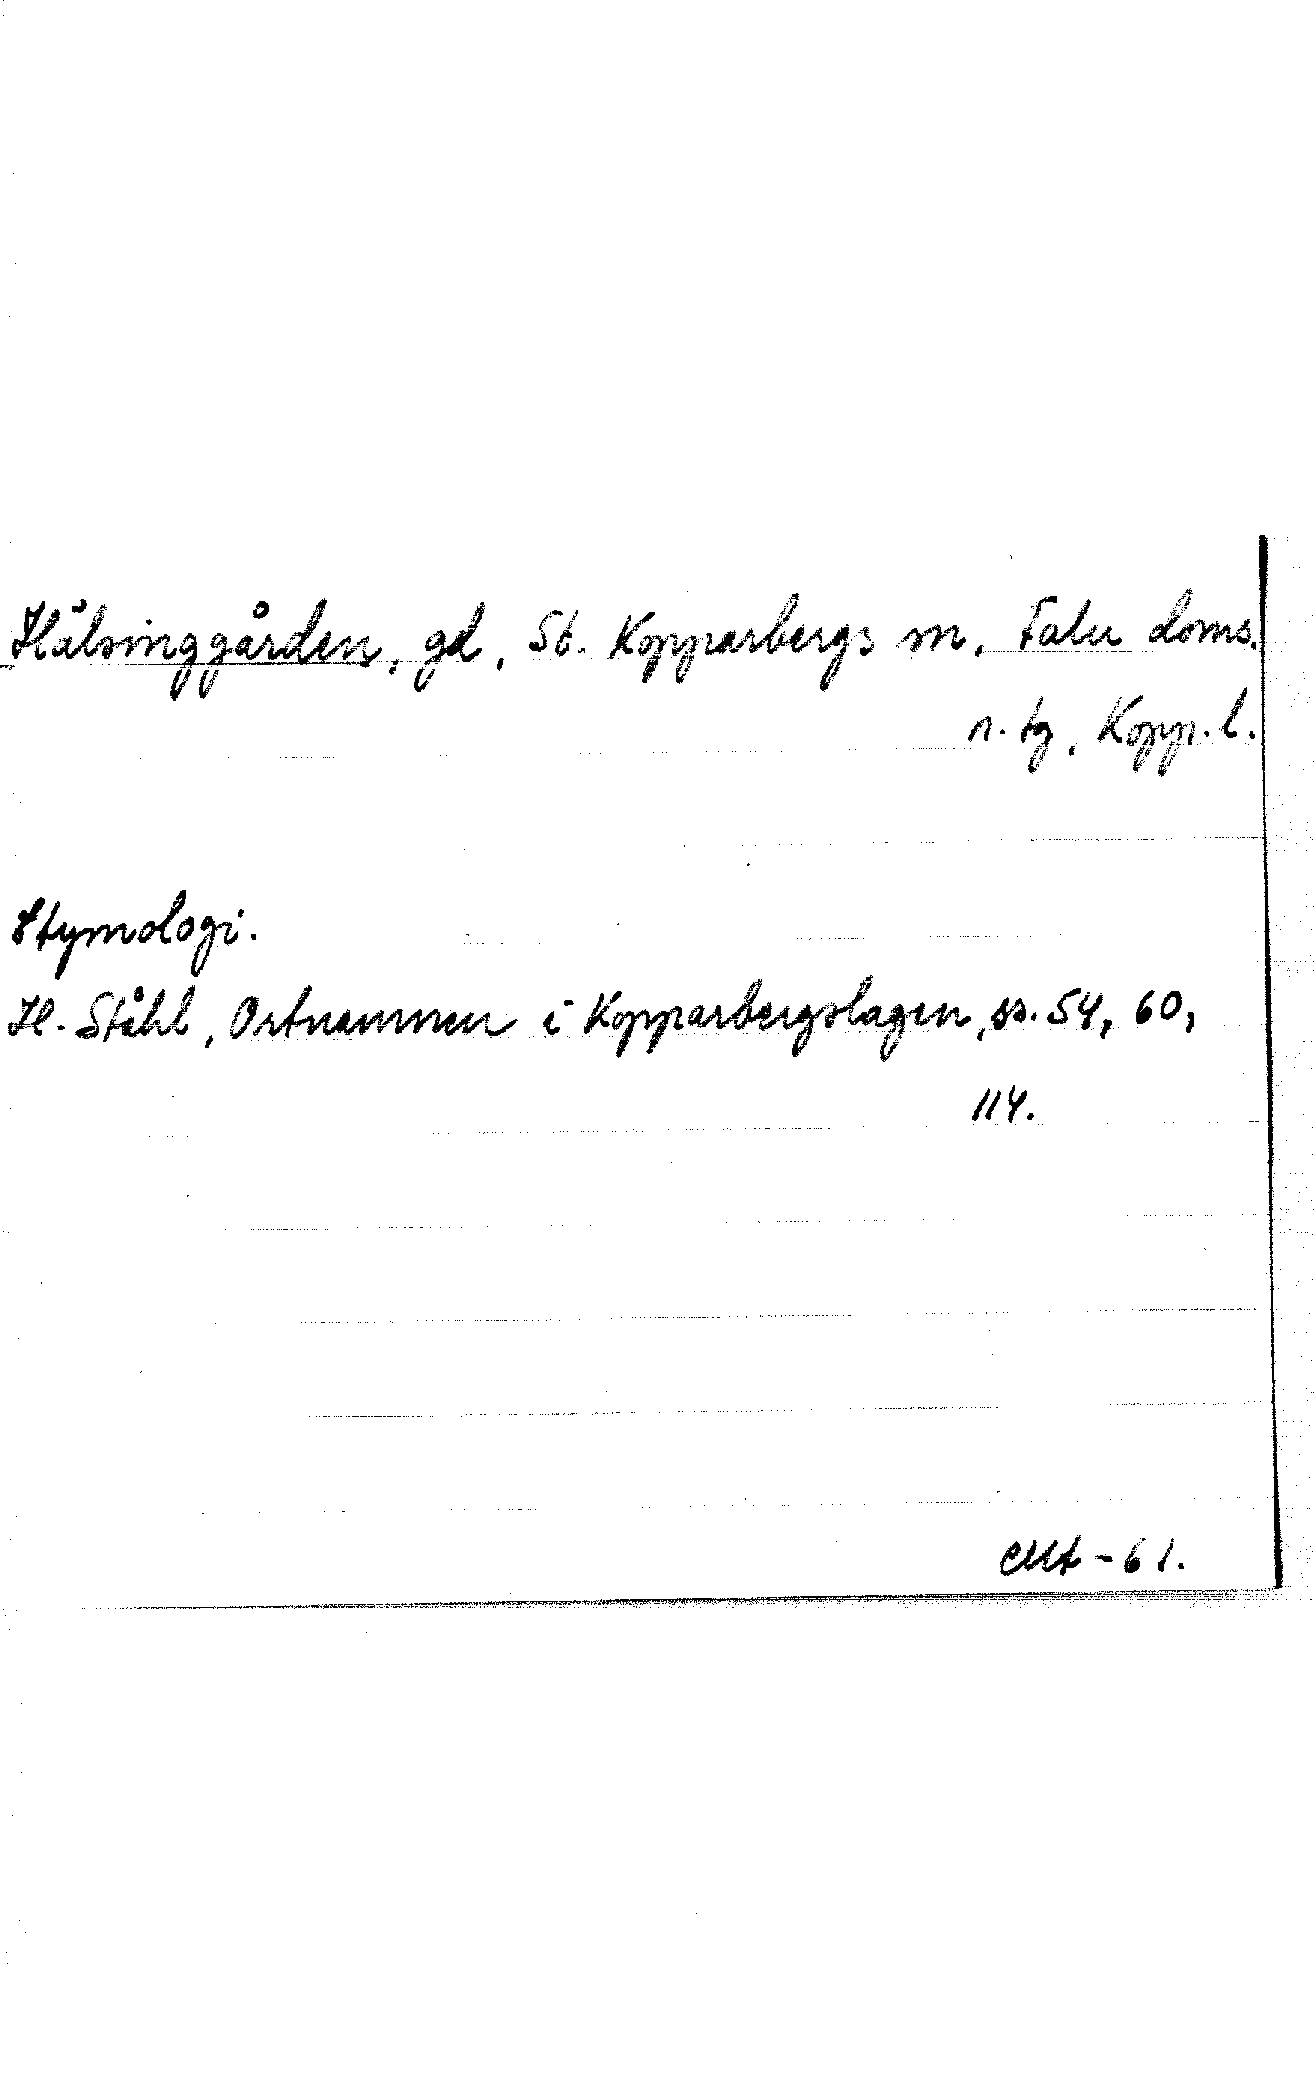 Hälsinggården, gd, St. Kopparbergs sn, Falu doms.
n. tg, Kopp. l.
Etymologi.
H. Ståhl, Ortnamnen i Kopparbergslagen, ss. 54, 60,
114.
-61.